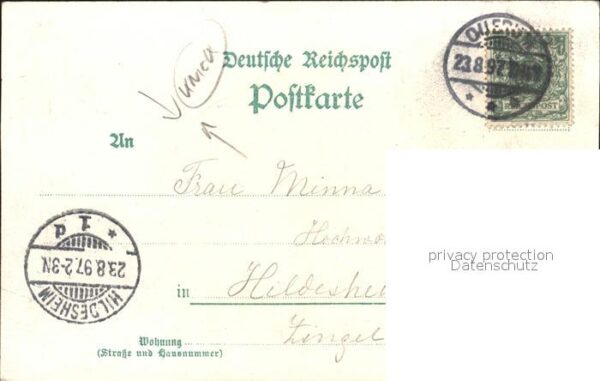 Deutsche Reichspost
Postkarte
23.8.97
REICHSPOST
An
Frau Minna
Hochwo
in Hildeshei
Zingel
Wohnung
(Straße und Hausnummer)
HILDESHEIM
23.8.97.2-3N.
* 1 d
privacy protection
Datenschutz